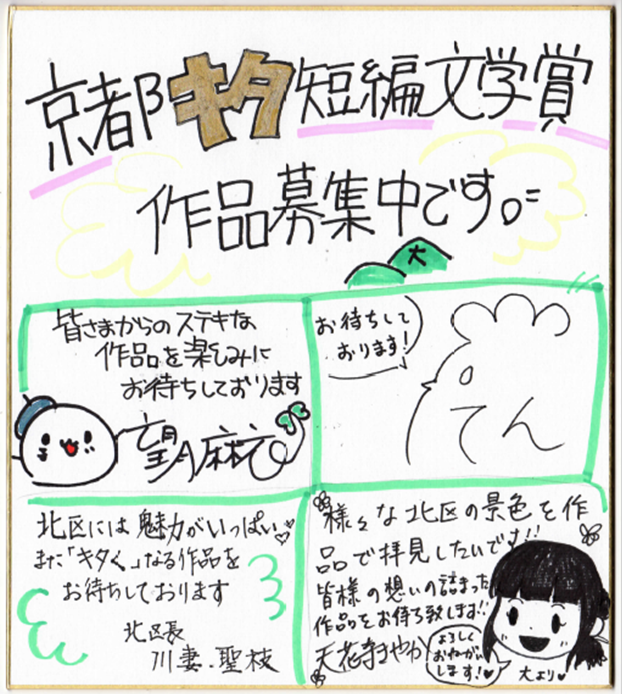 京都キタ短編文学賞
作品募集中です。
大
皆さまからのステキな
作品を楽しみに
お待ちしております
望月麻衣
お待ちして
おります!
てん
北区には魅力がいっぱい
また「キタく」なる作品を
お待ちしております
北区長
川妻 聖枝
様々な北区の景色を作
品で拝見したいです!!
皆様の想いの詰まった
作品をお待ち致します!!
天花寺さやか
よろしく
おねがい
します!♥
大より♥